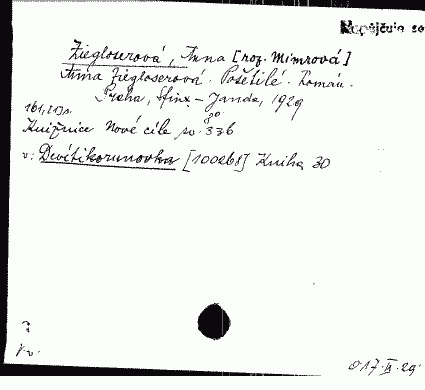 Nepůjčuje se
Ziegloserová, Anna [roz. Mimrová]
Anna Ziegloserová. Pošetilé. Román.
Praha, Sfinx - Janda, 1929
161, 213 s. 8°
Knižnice Nové cíle sv. 336
v: Devítikorunovka [100268] Kniha 30
017.IX.29.